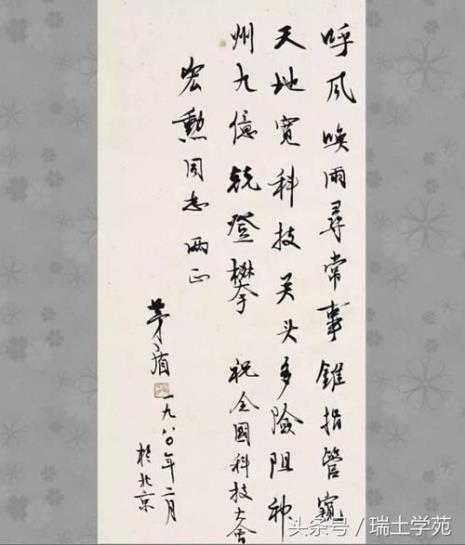 呼风唤雨寻常事錐指管窺
天地宽科技关头多險阻神
州九億競登攀 祝全國科技大会
宏勲同志 两正
茅盾 一九八〇年二月
於北京
头条号/瑞土学苑